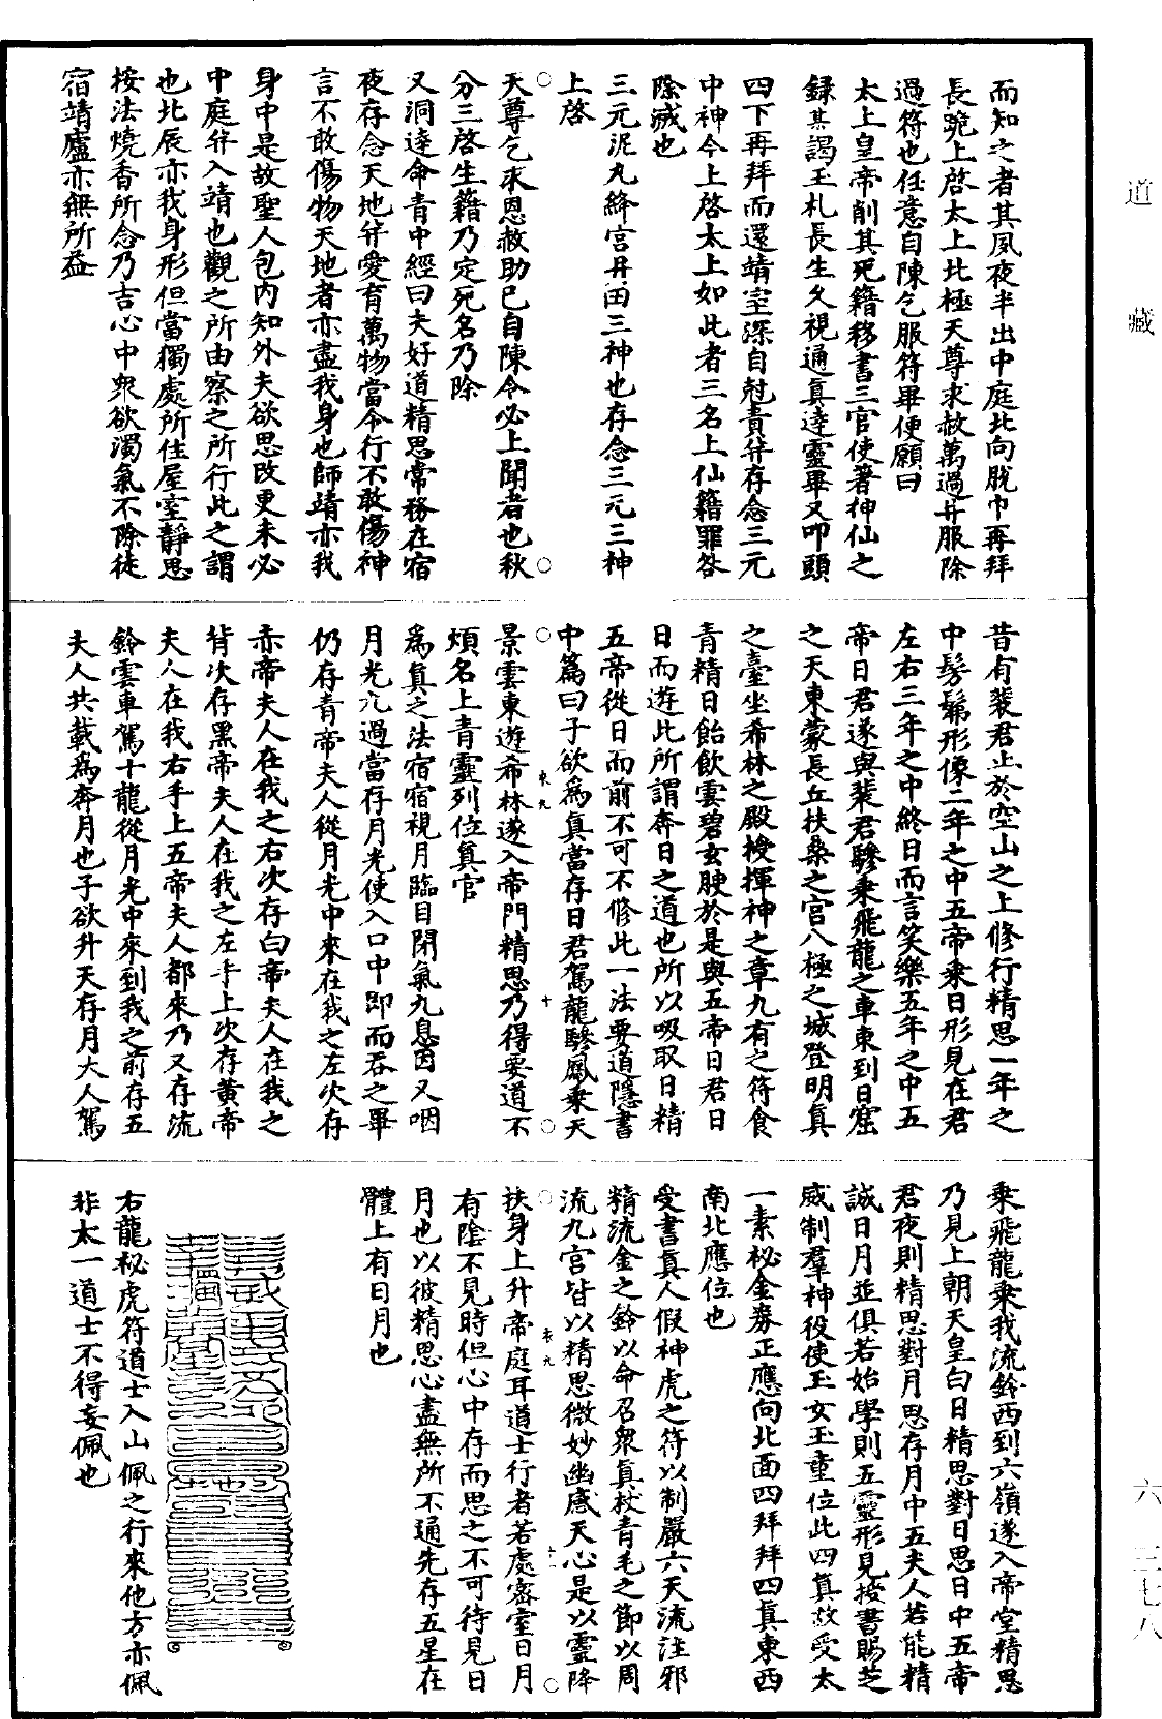 道藏
而知之者其夙夜半出中庭北向脫巾再拜
長跪上啓太上北極天尊求赦萬過幷服除
過符也任意自陳乞服符畢便願曰
太上皇帝削其死籍移書三官使著神仙之
録某謁玉札長生久視通真達靈畢又叩頭
四下再拜而還靖室深自尅責幷存念三元
中神今上啓太上如此者三名上仙籍罪咎
除滅也
三元泥丸絳宮丹田三神也存念三元三神
上啓
天尊乞求恩赦助已自陳令必上聞者也秋
分三啓生籍乃定死名乃除
又洞達命青中經曰夫好道精思常務在宿
夜存念天地幷愛育萬物當令行不敢傷神
言不敢傷物天地者亦盡我身也師靖亦我
身中是故聖人包內知外夫欲思改更未必
中庭幷入靖也觀之所由察之所行此之謂
也北辰亦我身形但當獨處所住屋室靜思
按法燒香所念乃吉心中衆欲濁氣不除徒
宿靖廬亦無所益
昔有裴君止於空山之上修行精思一年之
中髣髴形像二年之中五帝乘日形見在君
左右三年之中終日而言笑樂五年之中五
帝日君遂與裴君驂乘飛龍之車東到日窟
之天東蒙長丘扶桑之宮八極之城登明真
之臺坐希林之殿授揮神之章九有之符食
青精日飴飲雲碧玄腴於是與五帝日君日
日而遊此所謂奔日之道也所以吸取日精
五帝從日而前不可不修此一法要道隱書
中篇曰子欲爲真當存日君駕龍驂鳳乘天
景雲東遊希林遂入帝門精思乃得要道不
煩名上青靈列位真官
爲真之法宿宿視月臨目閉氣九息因又咽
月光九過當存月光使入口中即而吞之畢
仍存青帝夫人從月光中來在我之左次存
赤帝夫人在我之右次存白帝夫人在我之
背次存黑帝夫人在我之左手上次存黃帝
夫人在我右手上五帝夫人都來乃又存流
鈴雲車駕十龍從月光中來到我之前存五
夫人共載爲奔月也子欲升天存月夫人駕
乘飛龍乘我流鈴西到六嶺遂入帝堂精思
乃見上朝天皇白日精思對日思日中五帝
君夜則精思對月思存月中五夫人若能精
誠日月並俱若始學則五靈形見授書賜芝
威制羣神役使玉女玉童位此四真故受太
一素祕金券正應向北面四拜拜四真東西
南北應位也
受書真人假神虎之符以制嚴六天流注邪
精流金之鈴以命召衆真杖青毛之節以周
流九宮皆以精思微妙幽感天心是以靈降
扶身上升帝庭耳道士行者若處密室日月
有陰不見時但心中存而思之不可待見日
月也以彼精思心盡無所不通先存五星在
體上有日月也
右龍祕虎符道士入山佩之行來他方亦佩
非太一道士不得妄佩也
六 三七八